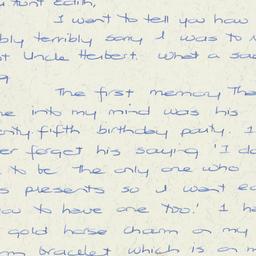 Aunt Edith,
I want to tell you how
terribly sorry I was to
Uncle Herbert. What a sad
The first memory tha
into my mind was his
fifth birthday party. I
forget his saying 'I do
to be the only one who
presents so I want ea
to have one too.' I ha
gold horse charm on my
bracelet which is on m